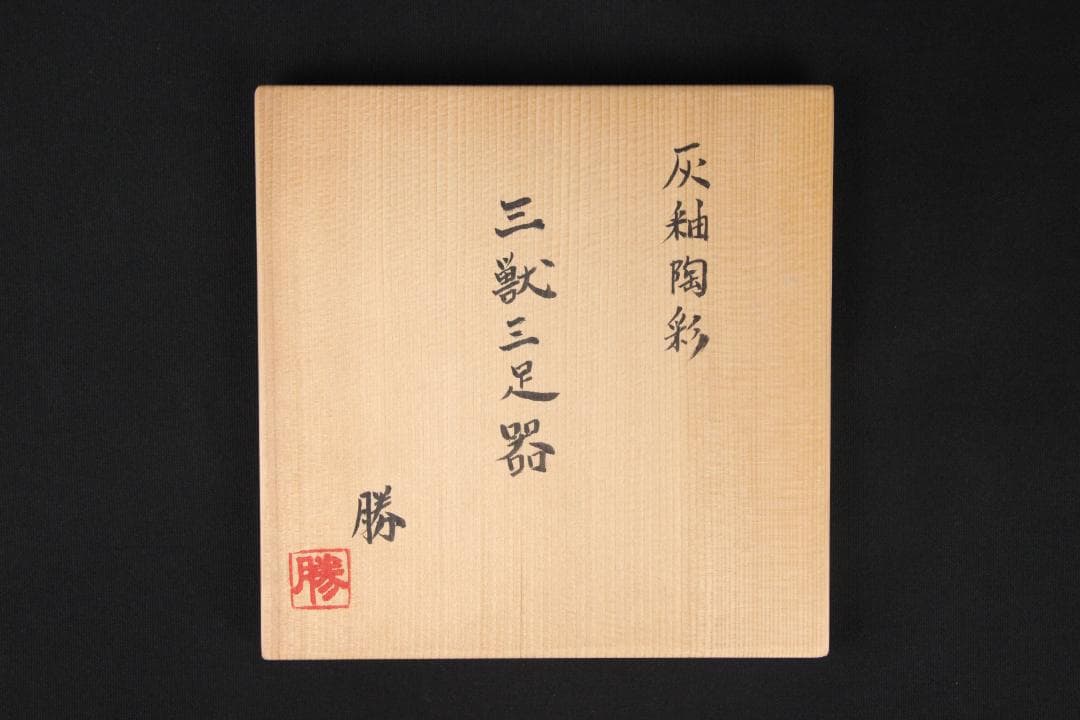 灰釉陶彩
三獣三足器
勝
勝